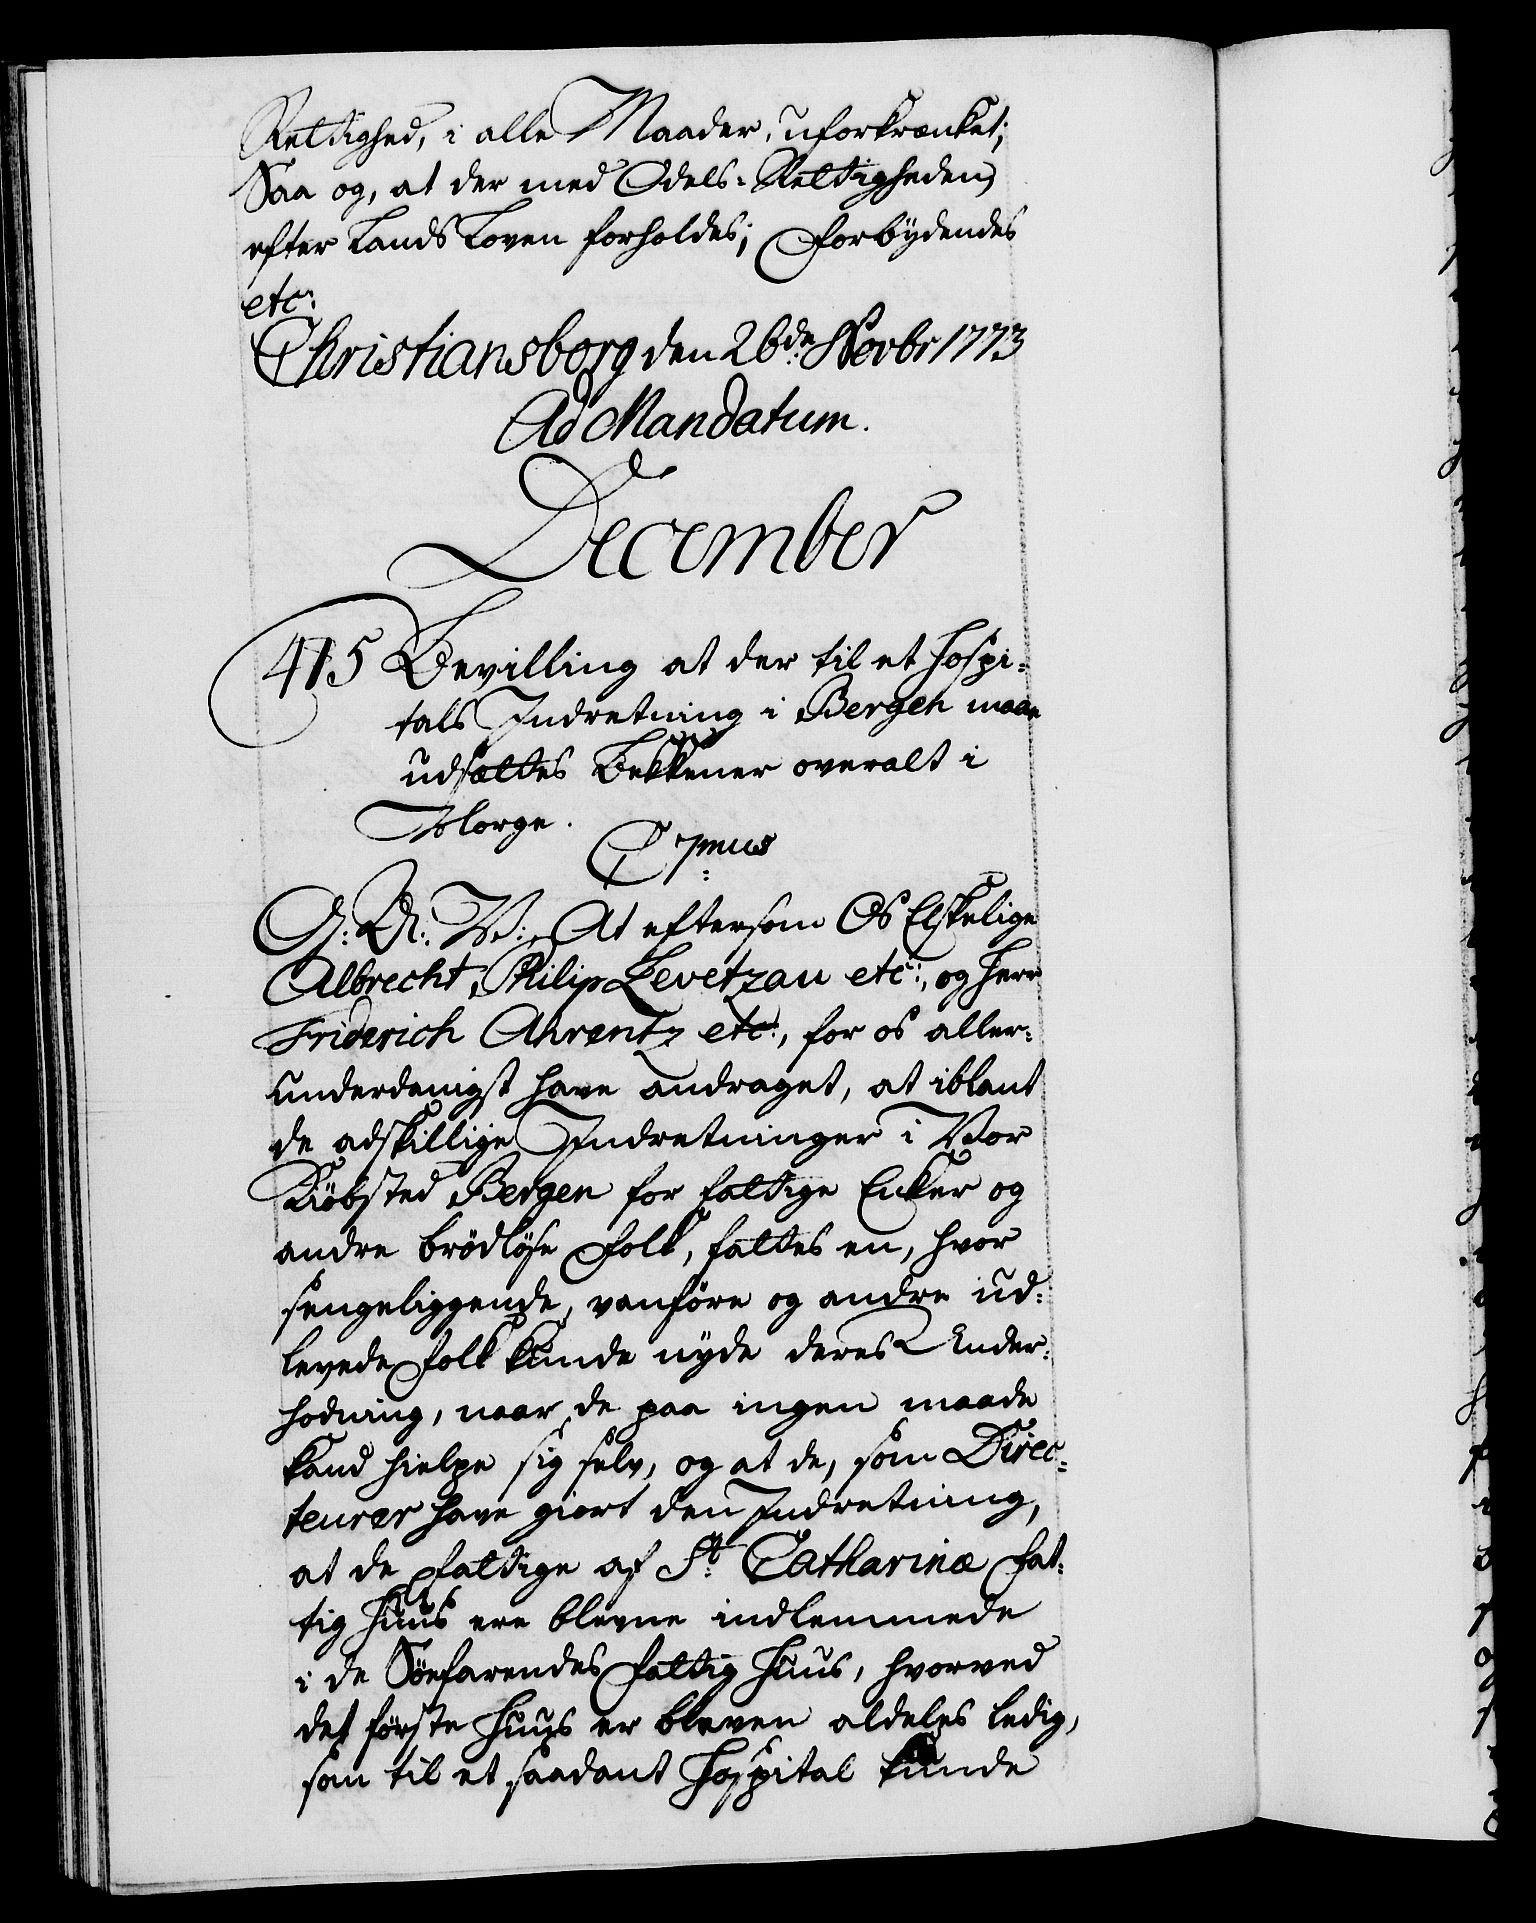 Rettighed, i alle Maader, uforkrænket;
Saa og, at der med Odels-Rettigheden
efter Lands Loven forholdes; Forbÿdendes
etc:
Christiansborg den 26de Novbr 1773
Ad Mandatum.
December
415 Bevilling at der til et Hospi-
tals Indretning i Bergen maae
udsættes Bekkener overalt i
Norge.
C 7mus
G: A: V:, At eftersom Os Elskelige
Albrecht, Philip Levetzau etc:, og Herr
Friderich Ahrentz etc:, for os aller-
underdanigst have andraget, at iblant
de adskillige Indretninger i Vor
Kiöbsted Bergen for fattige Enker og
andre brödløse Folk, fattes en, hvor
sengeliggende, vanföre og andre ud-
levede Folk kunde nyde deres Under-
hodning, naar de paa ingen maade
kand hielpe sig selv, og at de, som Direc-
teurer have giort den Indretning,
at de Fattige af St: Catharinæ Fat-
tig Huus ere blevne indlemmede
i de Söefarendes Fattig Huus, hvorved
det förste Huus er bleven aldeles ledig,
som til et saadant Hospital kunde